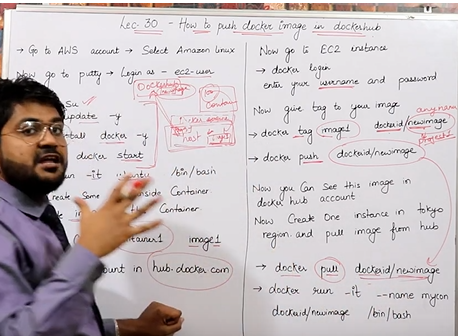 Lec-30 - How to push docker image in dockerhub
→ Go to AWS account → Select Amazon linux
Now go to putty → Login as - ec2-user
Su
update -y
tall docker -y
docker start
un -it ubuntu /bin/bash
reate Some inside Container
Container
tainer1 image1
ount in hub.docker.com
Now go to EC2 instance
→ docker login
enter your username and password
Now give tag to your image
any name
→ docker tag image1 dockerid/newimage
project1
→ docker push dockerid/newimage
Now you Can see this image in
docker hub account
Now Create One instance in tokyo
region and pull image from hub
→ docker pull dockerid/newimage
→ docker run -it --name mycon
dockerid/newimage /bin/bash